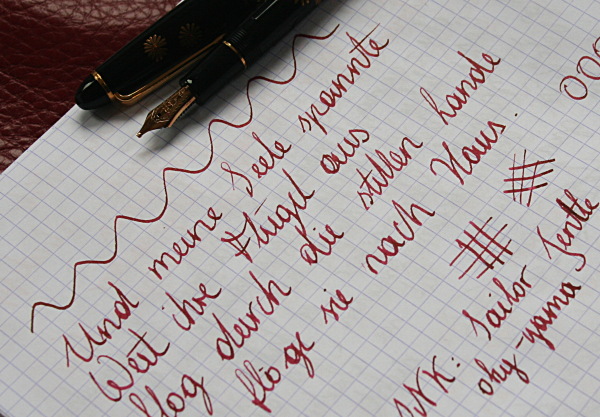 Und meine Seele spannte
Weit ihre Flügel aus
flog durch die stillen Lande
flöge sie nach Haus.
INK: Sailor Jentle
oky-yama